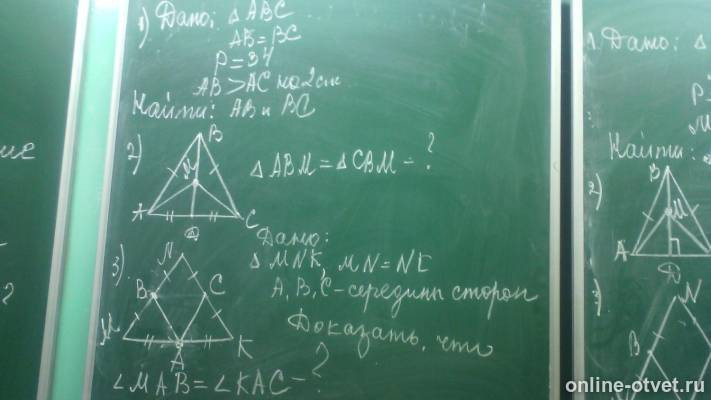 1) Дано: △ABC
AB=BC
P=34
AB>AC на 2 см
Найти: AB и BC
2)
B
M
A
C
D
△ABM=△CBM-?
3)
N
B
C
M
A
K
Дано:
△MNK, MN=NK
A, B, C-середины сторон
Доказать, что
∠MAB=∠KAC-?
1. Дано: △
P
Найти:
2)
B
M
A
D
3)
N
B
online-otvet.ru